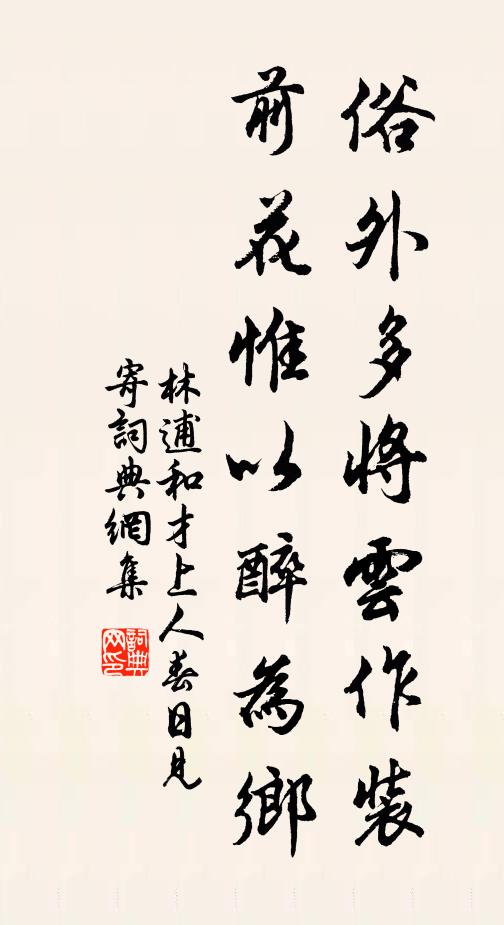 俗外多將雲作裝
前花惟以醉為鄉
林逋和才上人春日見
寄詞典網集
詞典網印